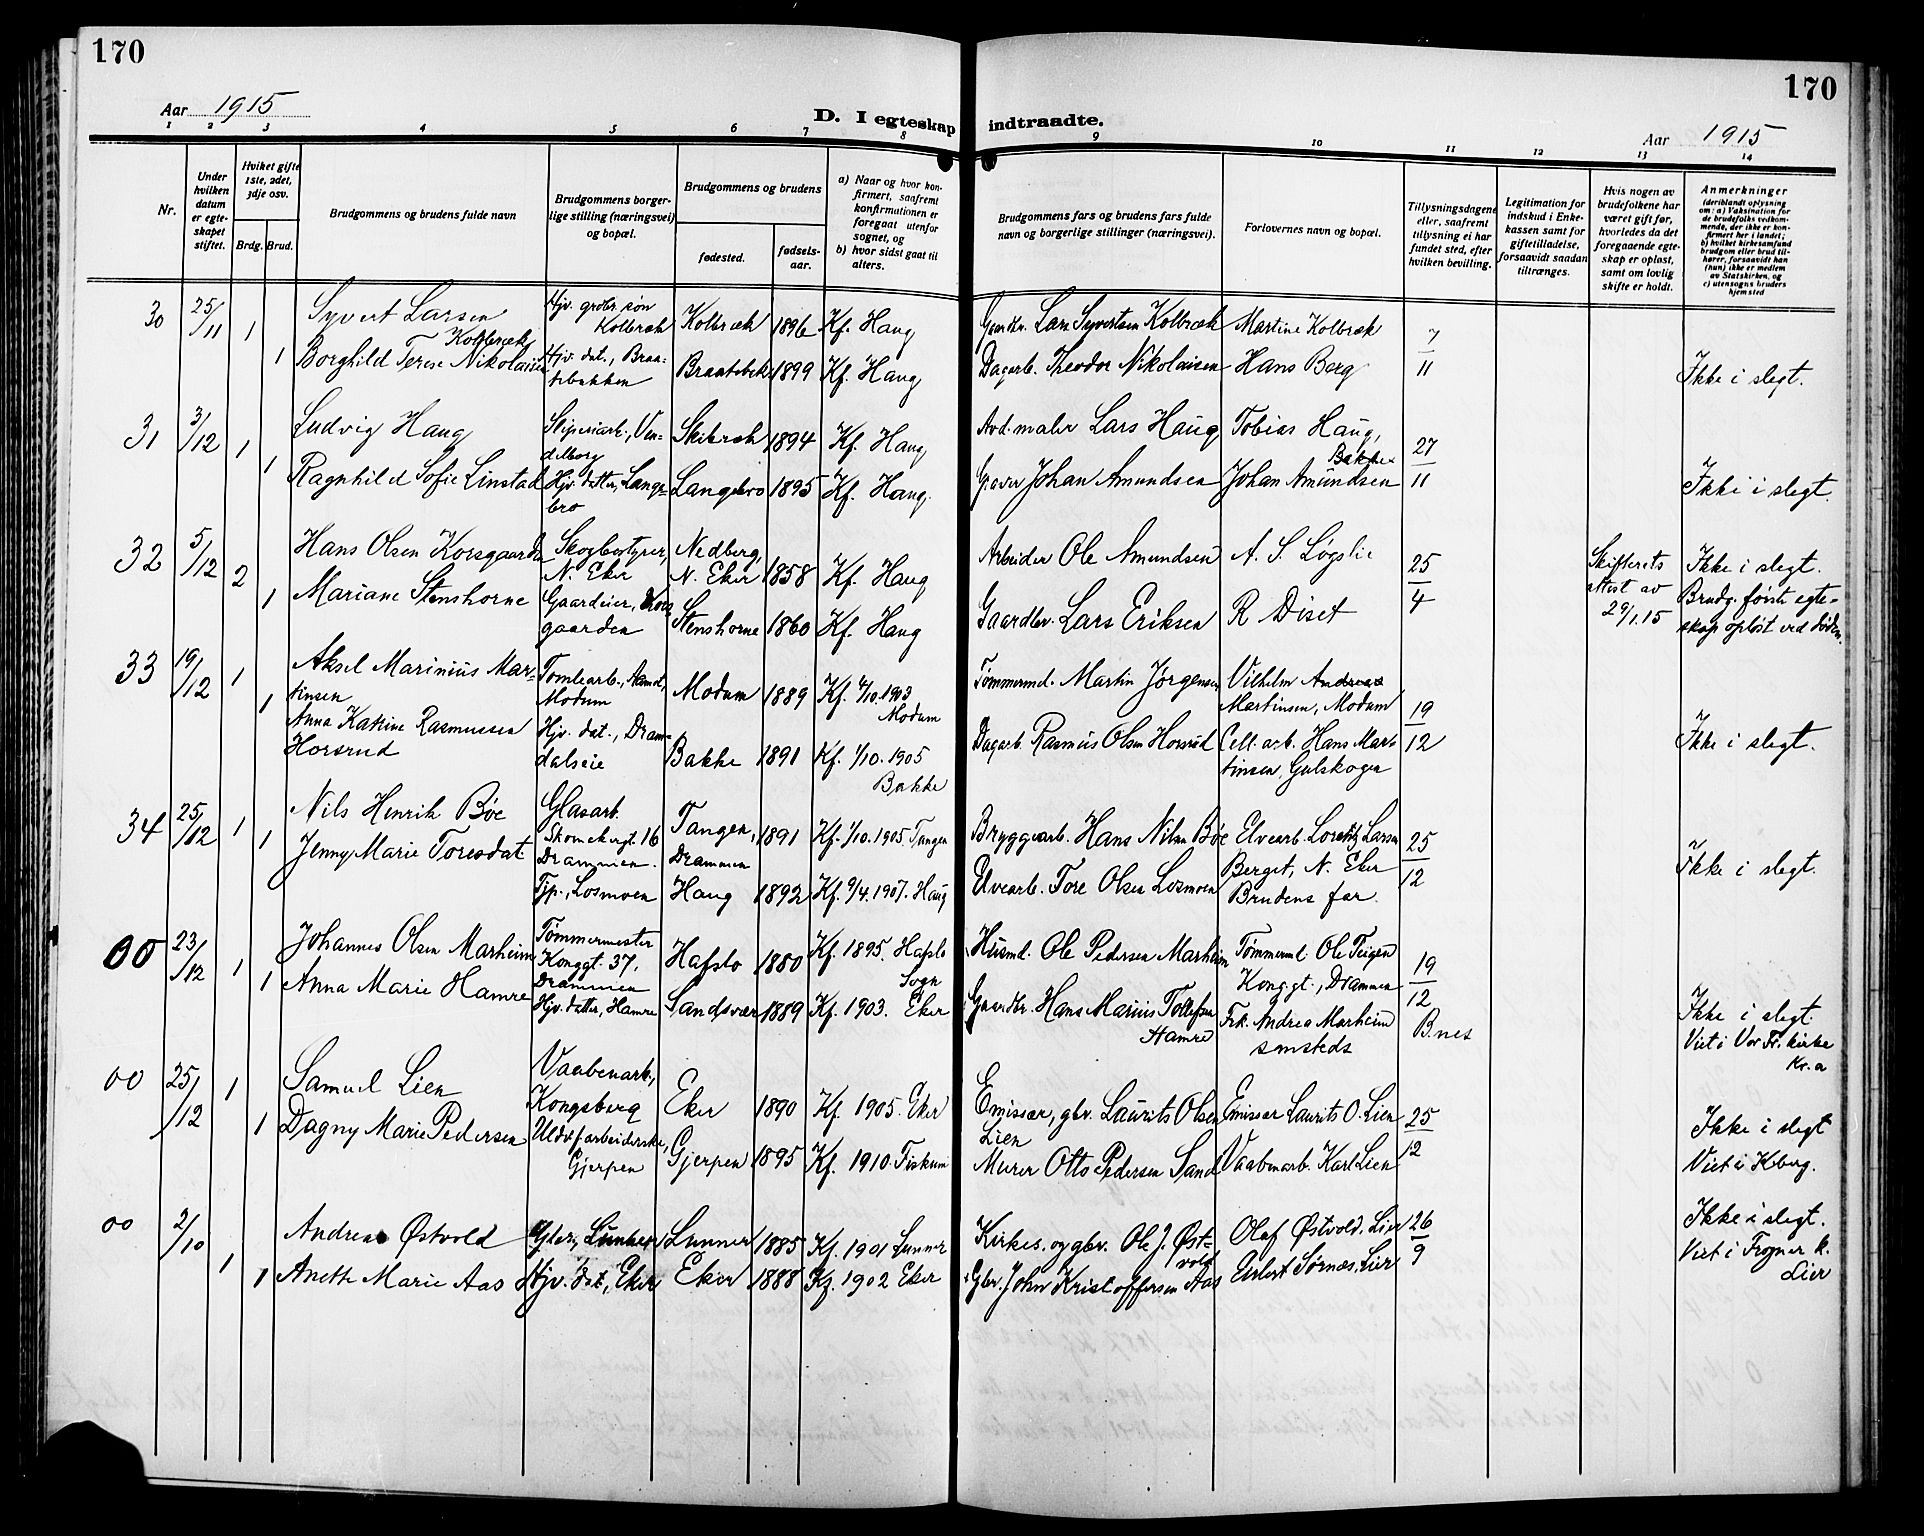 170
170
Aar 1915
D. I egteskap indtraadte.
Aar 1915
1 2 3 4 5 6 7 8 9 10 11 12 13 14
Nr.
Under hvilken datum er egteskapet stiftet.
Hviket gifte 1ste, 2det, 3dje osv.
Brdg. Brud.
Brudgommens og brudens fulde navn
Brudgommens borgerlige stilling (næringsvei) og bopæl.
Brudgommens og brudens
fødested.
fødselsaar.
a) Naar og hvor konfirmert, saafremt konfirmationen er foregaat utenfor sognet, og
b) hvor sidst gaat til alters.
Brudgommens fars og brudens fars fulde navn og borgerlige stillinger (næringsvei).
Forlovernes navn og bopæl.
Tillysningsdagene eller, saafremt tillysning ei har fundet sted, efter hvilken bevilling.
Legitimation for indskud i Enkekassen samt for giftetilladelse, forsaavidt saadan tiltrænges.
Hvis nogen av brudefolkene har været gift før, hvorledes da det foregaaende egteskap er opløst, samt om lovlig skifte er holdt.
Anmerkninger (deriblandt oplysning om: a) Vaksination for de brudefolks vedkommende, der ikke er konfirmert her i landet; b) hvilket kirkesamfund brudgom eller brud tilhører, forsaavidt han (hun) ikke er medlem av Statskirken, og c) utensogns bruders hjemsted
30 25/11 1 Syvert Larsen Kolbræk Hjv. grdbr. søn Kolbræk Kolbræk 1896 Kf. Haug Gaardbr. Lars Syvertsen Kolbræk Martine Kolbræk 7/11
1 Borghild Terese Nikolaisen Hjv. dat., Braatebakken Braatebak 1899 Kf. Haug Dagarb. Theodor Nikolaisen Hans Borg Ikke i slegt.
31 3/12 1 Ludvig Haug Sliperiarb., Vendelborg Skibræk 1894 Kf. Haug Avd. maler Lars Haug Tobias Haug, Bakke 27/11
1 Ragnhild Sofie Linstad Hjv. datter, Langebro Langebro 1895 Kf. Haug. Graver Johan Amundsen Johan Amundsen Ikke i slegt.
32 5/12 2 Hans Olsen Korsgaarden Skogbestyrer, N. Eker Nedberg, N. Eker 1858 Kf. Haug Arbeider Ole Amundsen A. S. Løgslie 25/4 Skifterets attest av 29/1.15 Ikke i slegt.
1 Mariane Stenshorne Gaardeier, Korsgaarden Stenshorne 1860 Kf. Haug Gaardbr. Lars Eriksen R Diset Brudg. første egteskap opløst ved døden.
33 19/12 1 Aksel Marinius Martinsen Tomtearb., Aamot, Modum Modum 1889 Kf. 4/10.1903 Modum Tømmermd. Martin Jørgensen Vilhelm Andreas Martinsen, Modum 19/12
1 Anna Katrine Rasmussen Horsrud Hjv. dat., Dramdalseie Bakke 1891 Kf. 1/10.1905 Bakke Dagarb. Rasmus Olsen Horsrud Cell. arb. Hans Martinsen, Gulskogen Ikke i slegt.
34 25/12 1 Nils Henrik Bøe Glasarb. 16 Drammen. Tangen, Drammen 1891 Kf. 1/10.1905. Tangen Bryggearb. Hans Nilsen Bøe Elvearb. Lorentz Larsen Berget, N. Eker 25/12
1 Jenny Marie Toresdat Tjp., Losmoen Haug 1892 Kf. 9/4.1907. Haug Elvearb. Tore Olsen Losmoen Brudens far. Ikke i slegt.
00 23/12 1 Johannes Olsen Marheim Tømmermester Konggt. 37. Drammen Hafslo 1880 Kf. 1895. Hafslo Sogn Husmd. Ole Pedersen Marheim Tømmermd. Ole Teigen Konggt., Drammen 19/12
1 Anna Marie Hamre Hjv. datter, Hamre Sandsvær 1889 Kf. 1903. Eker Gaardbr. Hans Marius Tollefsen Hamre Frk. Andrea Marheim smsteds B.nes Ikke i slegt. Viet i Vor Fr. kirke Kr.a
00 25/12 1 Samuel Lien Vaabenarb., Kongsberg Eker 1890 Kf. 1905. Eker Emissær, gbr. Laurits Olsen Lien Emissær Laurits O. Lien 25/12
1 Dagny Marie Pedersen Uldvf. arbeiderske, Gjerpen Gjerpen 1895 Kf. 1910. Fiskum Murer Otto Pedersen Sand Vaabenarb. Karl Lien Ikke i slegt Viet i Kberg.
00 2/10 1 Andreas Østvold Lunner Lunner 1885 Kf. 1901 Lunner Kirkes. og gbr. Ole J. Østvold Olaf Østvold, Lier 26/9 Ikke i slegt.
1 Anette Marie Aas Hjv. dat., Eker Eker 1888 Kf. 1902 Eker Gbr. John Kristoffersen Aas Eilert Sørnæs, Lier Viet i Frogner k. Lier